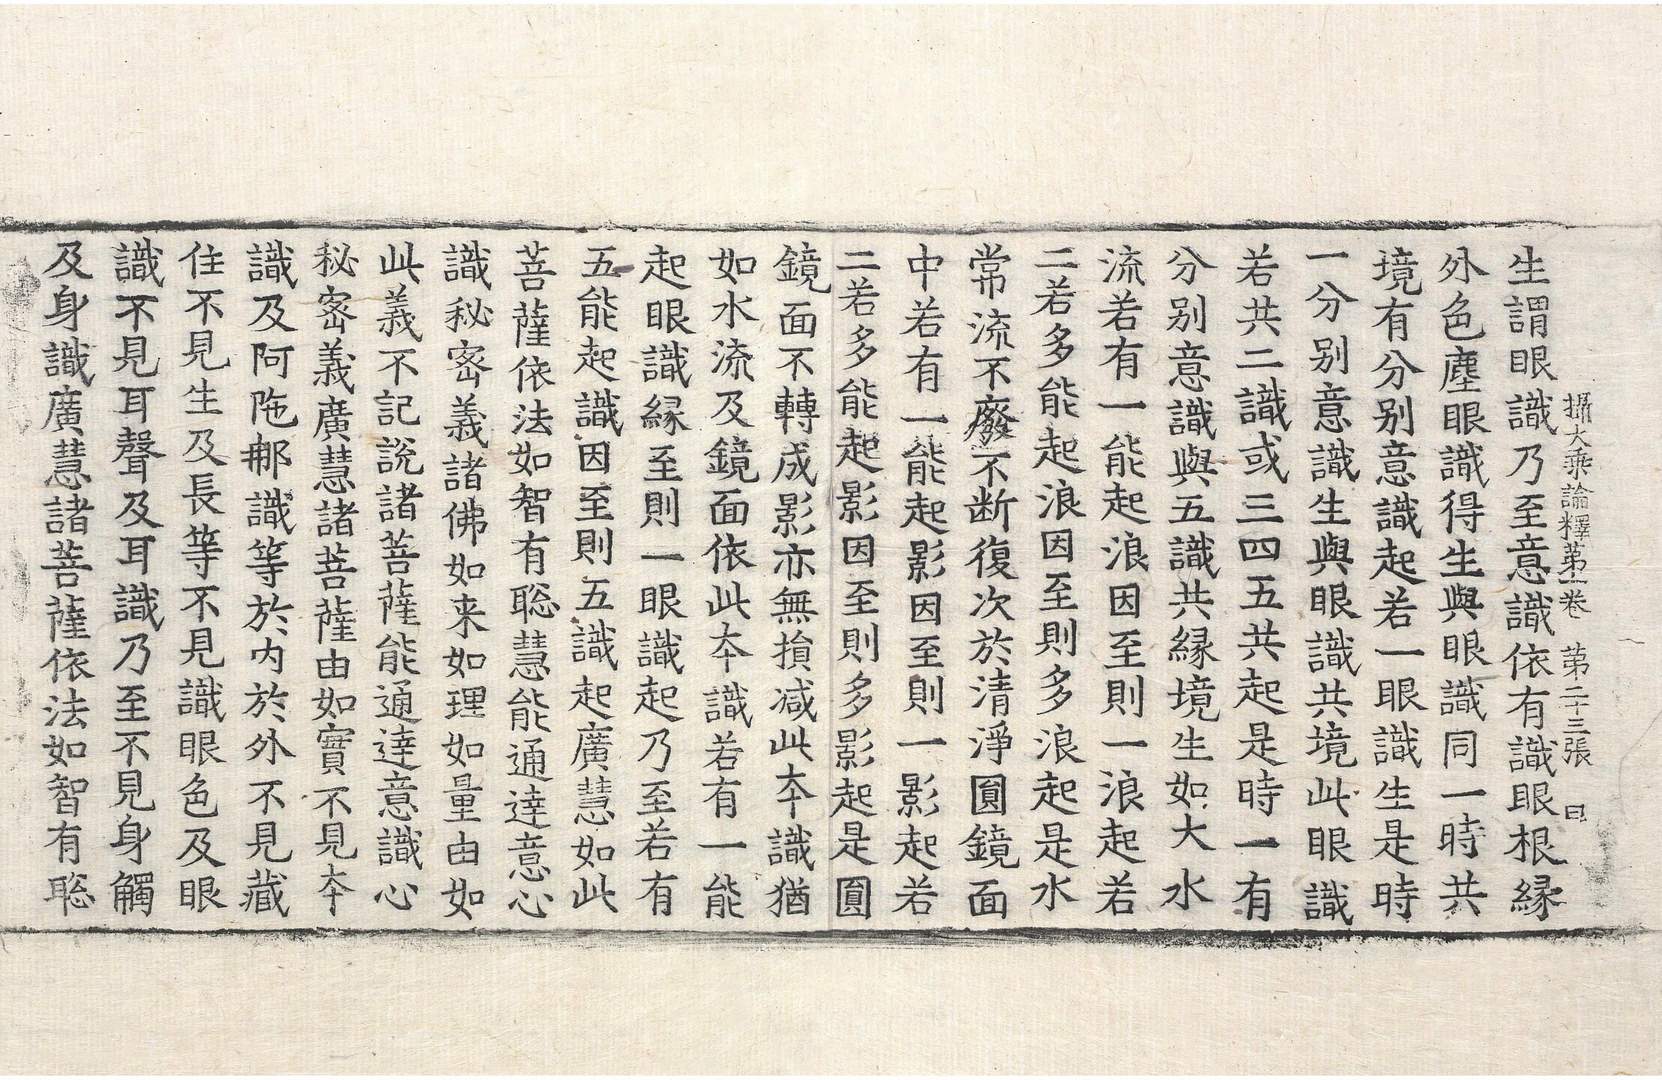 攝大乘論釋第一卷　第二十三張　曰
生謂眼識乃至意識依有識眼根縁
外色塵眼識得生與眼識同一時共
境有分别意識起若一眼識生是時
一分别意識生與眼識共境此眼識
若共二識或三四五共起是時一有
分别意識與五識共縁境生如大水
流若有一能起浪因至則一浪起若
二若多能起浪因至則多浪起是水
常流不廢不断復次於清淨圓鏡面
中若有一能起影因至則一影起若
二若多能起影因至則多影起是圓
鏡面不轉成影亦無損减此夲識猶
如水流及鏡面依此夲識若有一能
起眼識縁至則一眼識起乃至若有
五能起識因至則五識起廣慧如此
菩薩依法如智有聡慧能通達意心
識秘宻義諸佛如来如理如量由如
此義不記說諸菩薩能通達意識心
秘宻義廣慧諸菩薩由如實不見夲
識及阿陁那識等於内於外不見藏
住不見生及長等不見識眼色及眼
識不見耳聲及耳識乃至不見身觸
及身識廣慧諸菩薩依法如智有聡